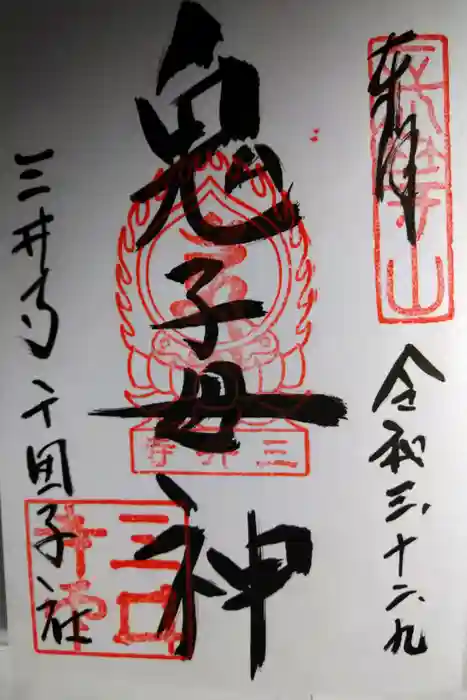 奉拝
長等山
令和三、十二、九
鬼子母神
三井寺
三井寺 千団子社
三井寺印